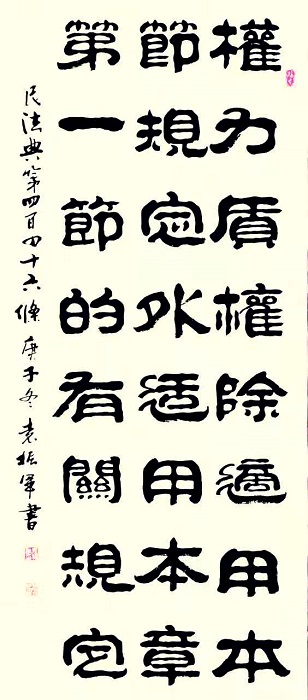 權力質權除適用本
節規定外适用本章
第一節的有關規定
民法典第四百四十六條 庚子冬 袁振軍書